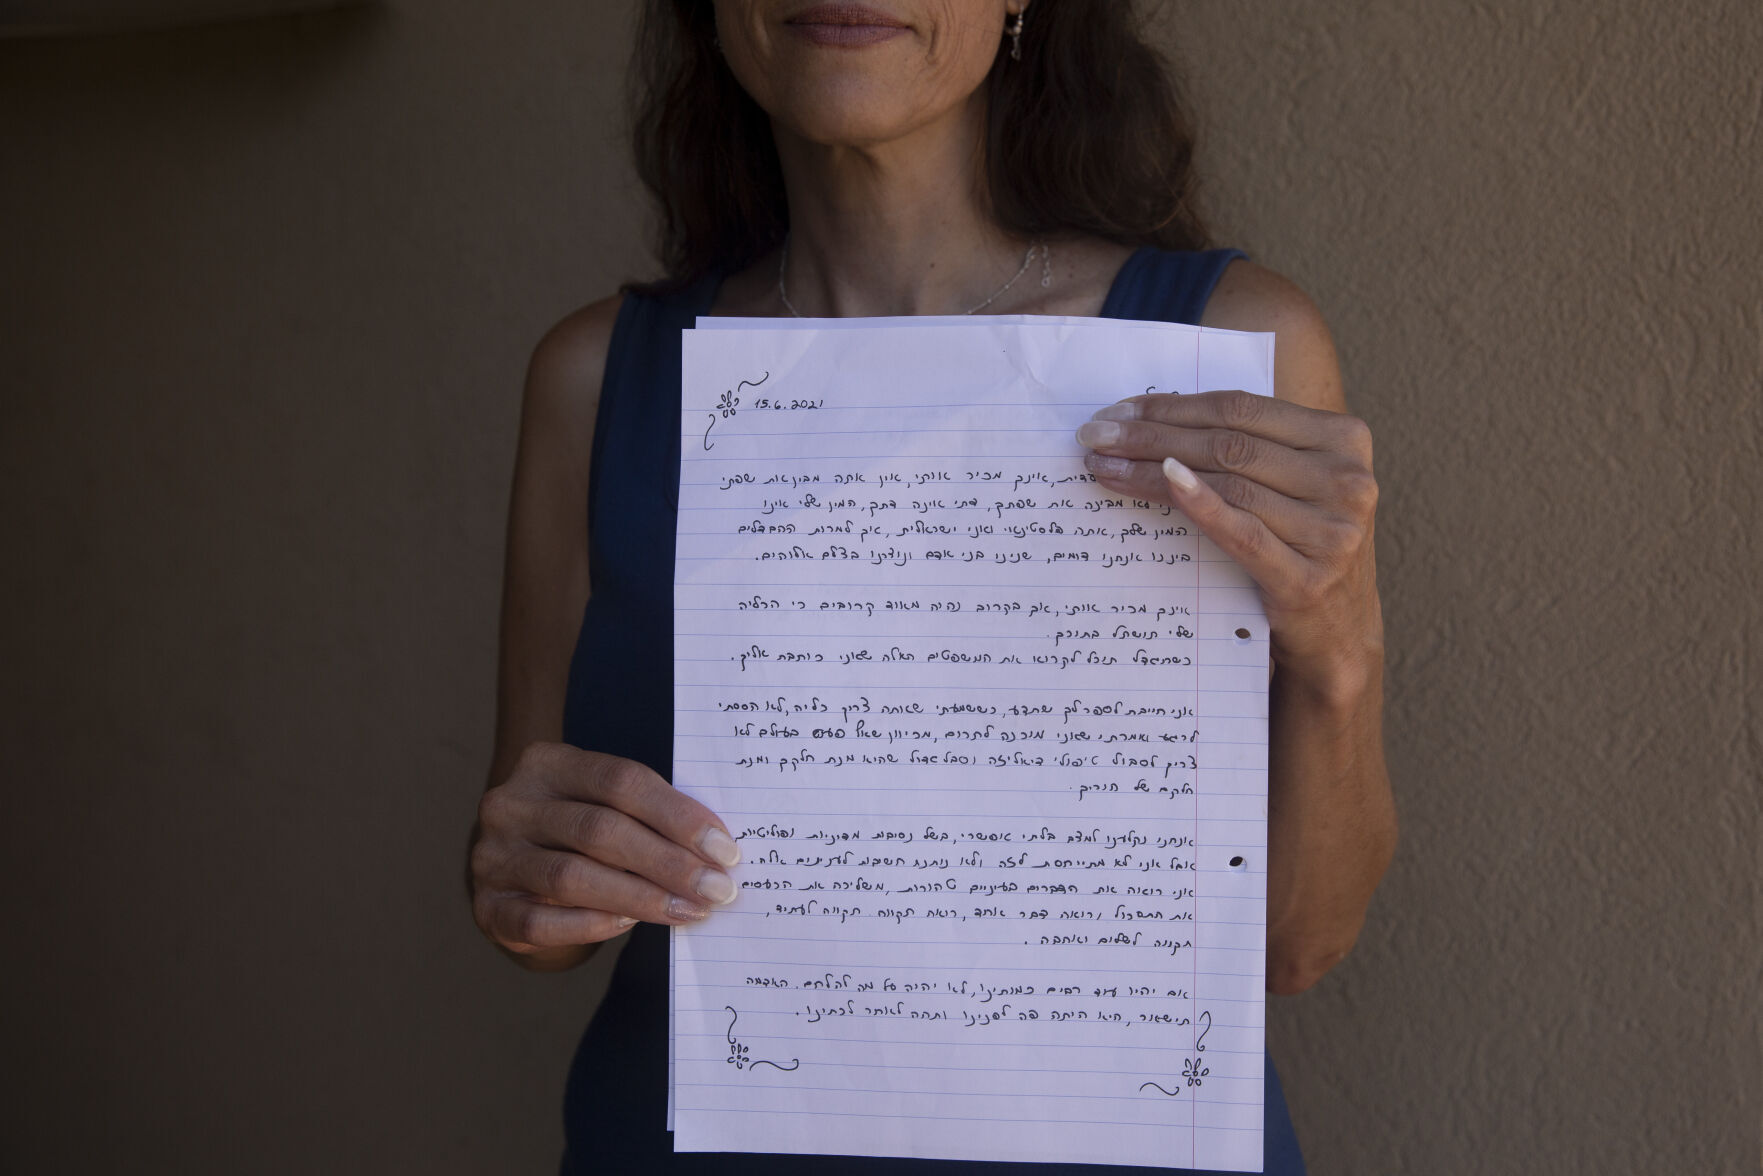 15.6.2021
אינך מכיר אותי, אין אתה מבין את שפתי
לא מבינה את שפתך, דתי אינה דתך, המין שלי אינו
המין שלך, אתה פלסטינאי ואני ישראלית, אך למרות ההבדלים
ביננו אנחנו דומים, שנינו בני אדם ונוצרנו בצלם אלוהים.
אינך מכיר אותי, אך בקרוב נהיה מאוד קרובים כי הכליה
שלי תושתל בתוכך.
כשתיגדל תוכל לקרוא את המשפטים האלה שאני כותבת אליך.
אני חייבת לספר לך שתדע, כששמעתי שאתה צריך כליה, לא הססתי
לרגע ואמרתי שאני מוכנה לתרום, מכיוון שאף פעוט בעולם לא
צריך לסבול טיפולי דיאליזה וסבל גדול שהיא מנת חלקך ומנת
חלקם של הוריך.
אנחנו נקלענו למצב בלתי אפשרי, בשל נסיבות מדיניות ופוליטיות
אבל אני לא מתייחסת לזה ולא נותנת חשיבות לעניינים אלה.
אני רואה את הדברים בעיניים טהורות, משליכה את הכעסים
את התסכול ורואה דבר אחד, רואה תקווה. תקווה לעתיד,
תקווה לשלום ואהבה.
אם יהיו עוד רבים כמותינו, לא יהיה על מה להלחם. האדמה
תישאר, היא היתה פה לפנינו ותהיה לאחר לכתינו.